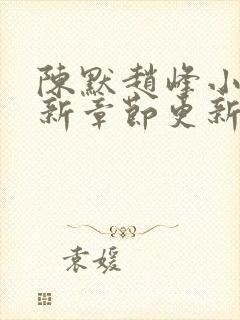 陳默趙峰小
新章節更新
袁媛